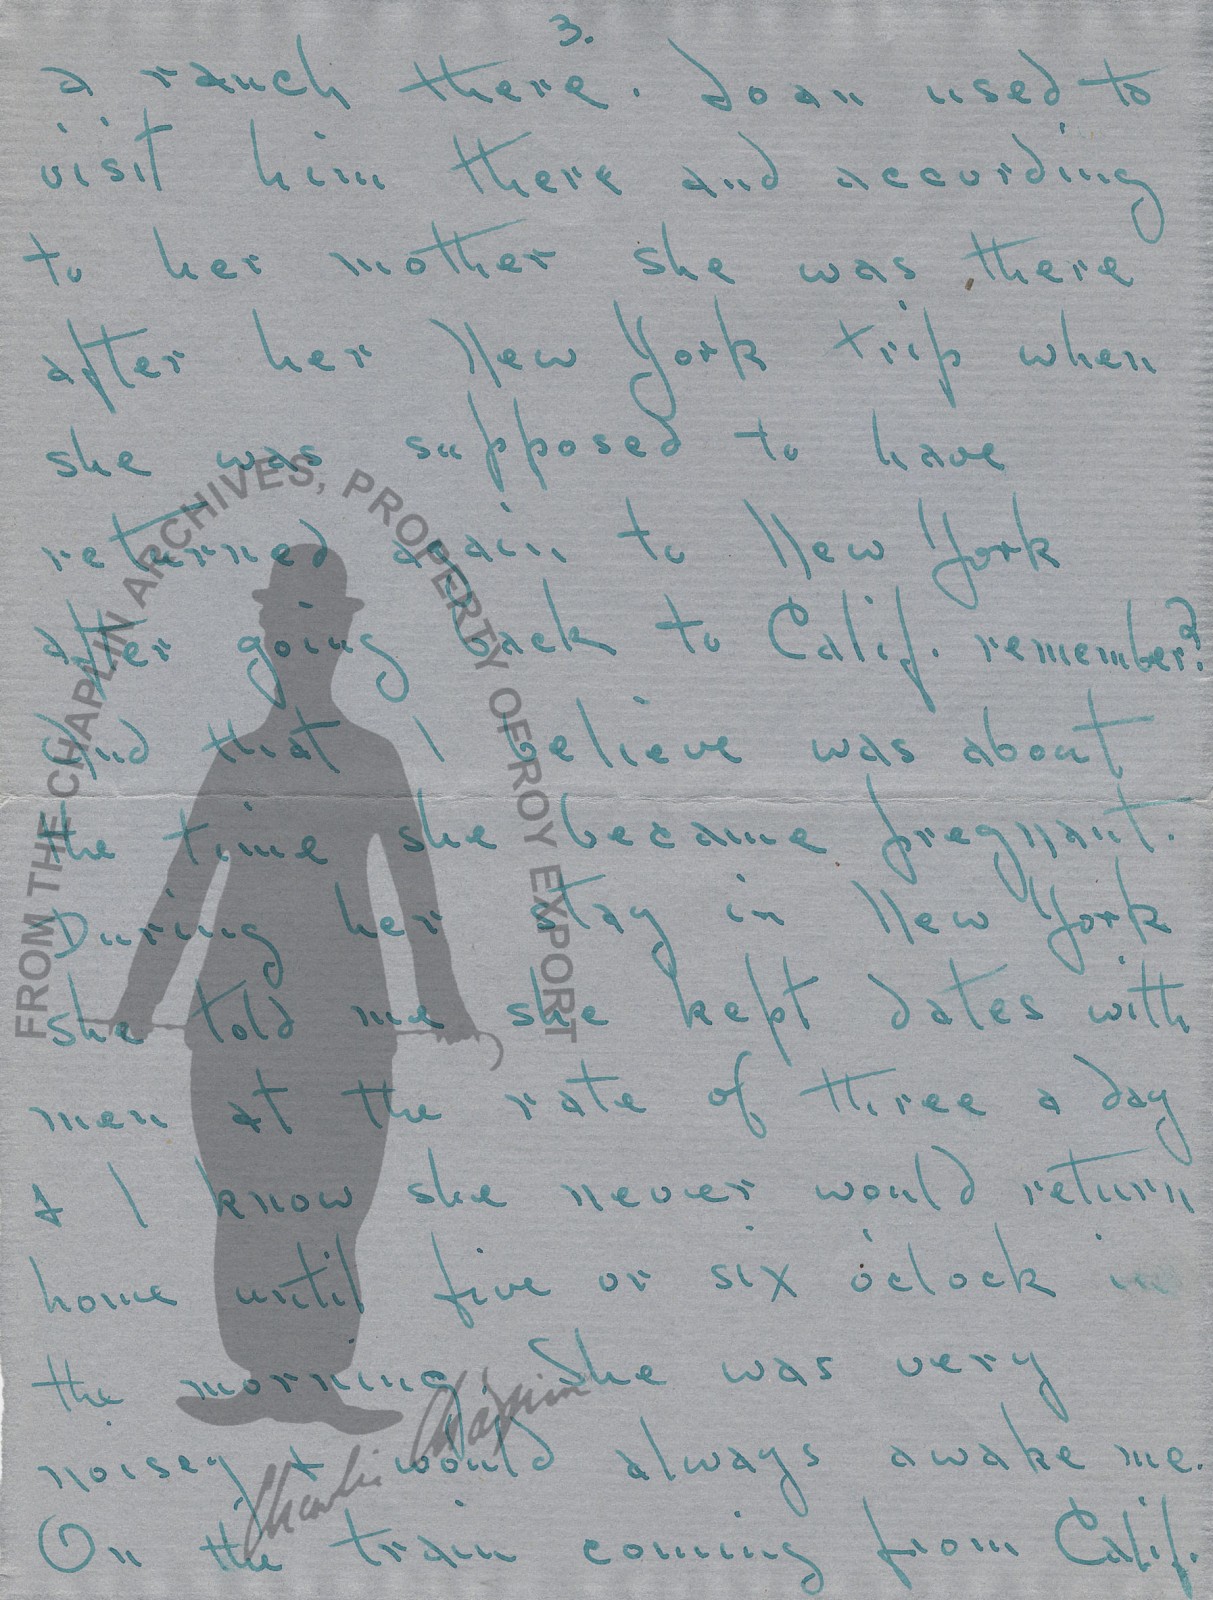 3.
a ranch there. Joan used to
visit him there and according
to her mother she was there
after her New York trip when
she was supposed to have
returned again to New York
after going back to Calif. remember?
And that I believe was about
the time she became pregnant.
During her stay in New York
she told me she kept dates with
men at the rate of three a day
& I know she never would return
home until five or six o'clock in
the morning. She was very
noisey & would always awake me.
On the train coming from Calif.
FROM THE CHAPLIN ARCHIVES, PROPERTY OF ROY EXPORT
Charlie Chaplin